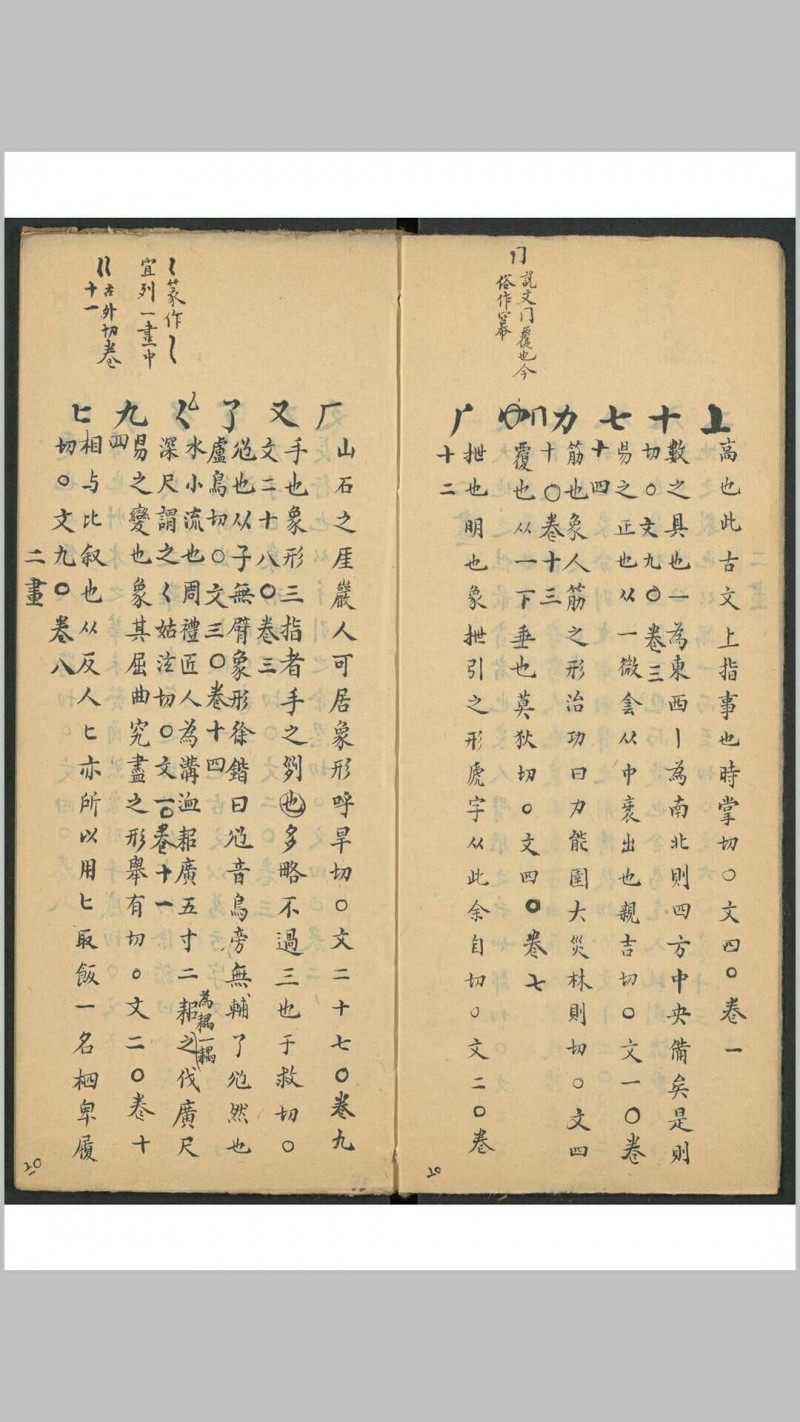 冂
説文冂覆也今
俗作冪
上
高也此古文上指事也時掌切○文四○卷一
十
數之具也一為東西丨為南北則四方中央備矣是則
切○文九○卷三
七
昜之正也从一微侌从中衺出也親吉切○文一○卷
十四
力
筋也象人筋之形治功曰力能圉大災林則切○文四
十○卷十三
冂
覆也从一下垂也莫狄切○文四○卷七
厂
抴也明也象抴引之形虒字从此余自切○文二○卷
十二
20
篆作
宜列一畫中
巜古外切卷
十一
厂
山石之厓巖人可居象形呼旱切○文二十七○卷九
又
手也象形三指者手之𠛱也多略不過三也于救切○
文二十八○卷三
了
尥也从子無臂象形徐鍇曰尥音鳥旁無輔了尥然也
盧鳥切○文三○卷十四
く
水小流也周禮匠人為溝洫耜廣五寸二耜為耦一耦之伐廣尺
深尺謂之く姑泫切○文一○卷十一
九
昜之變也象其屈曲究盡之形舉有切○文二○卷十
四
匕
相与比叙也从反人匕亦所以用匕取飯一名柶卑履
切○文九○卷八
二畫
20